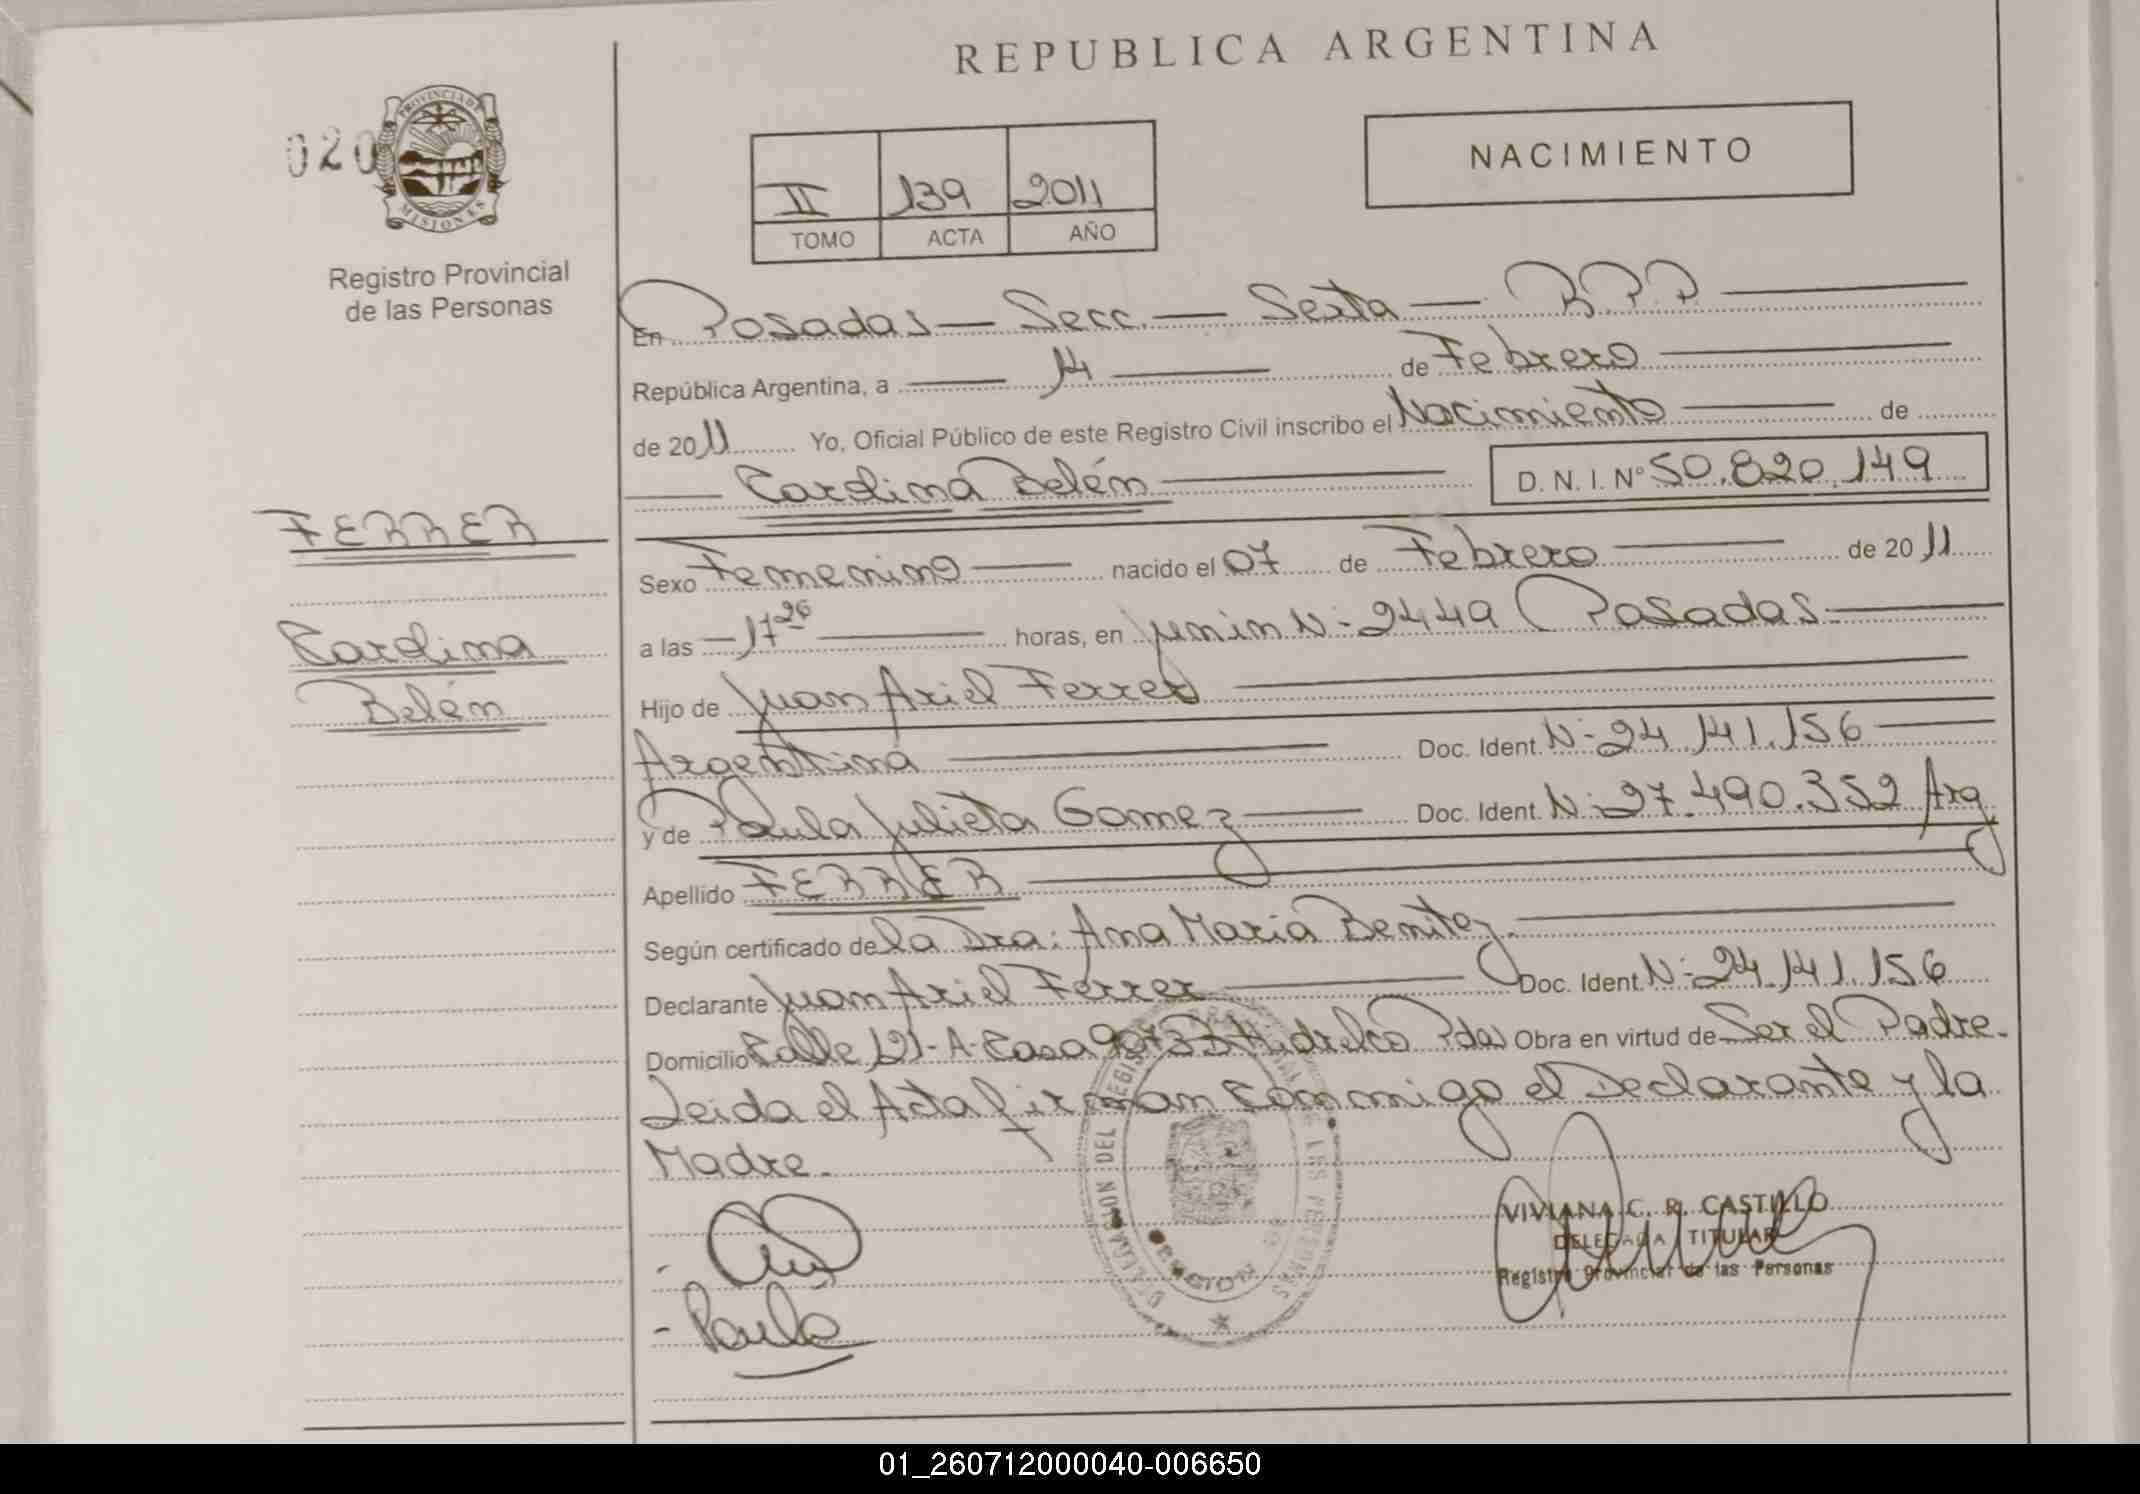 REPUBLICA ARGENTINA
020
PROVINCIA DE
MISIONES
Registro Provincial
de las Personas
II 139 2011
TOMO ACTA AÑO
NACIMIENTO
En Posadas — Secc. — Sexta — R.P.P.
República Argentina, a — 14 — de Febrero
de 2011 Yo, Oficial Público de este Registro Civil inscribo el Nacimiento — de
Carolina Belén — D. N. I. Nº 50.820.149
FERRER
Carolina
Belén
Sexo Femenino — nacido el 07 de Febrero — de 2011
a las — 17 26 — horas, en Junin Nº 2449 Posadas.
Hijo de Juan Ariel Ferrer
Argentina — Doc. Ident. Nº 24.141.156
y de Paula Julieta Gomez — Doc. Ident. Nº 27.490.352 Arg
Apellido FERRER
Según certificado de la Dra: Ana Maria Benitez.
Declarante Juan Ariel Ferrer — Doc. Ident. Nº 24.141.156
Domicilio Calle 121-A-Casa Pdas Obra en virtud de Ser el Padre.
Leida el Acta firman conmigo el Declarante y la
Madre.
Paula
VIVIANA C. R. CASTILLO
DELEGADA TITULAR
Registro Provincial de las Personas
01_260712000040-006650